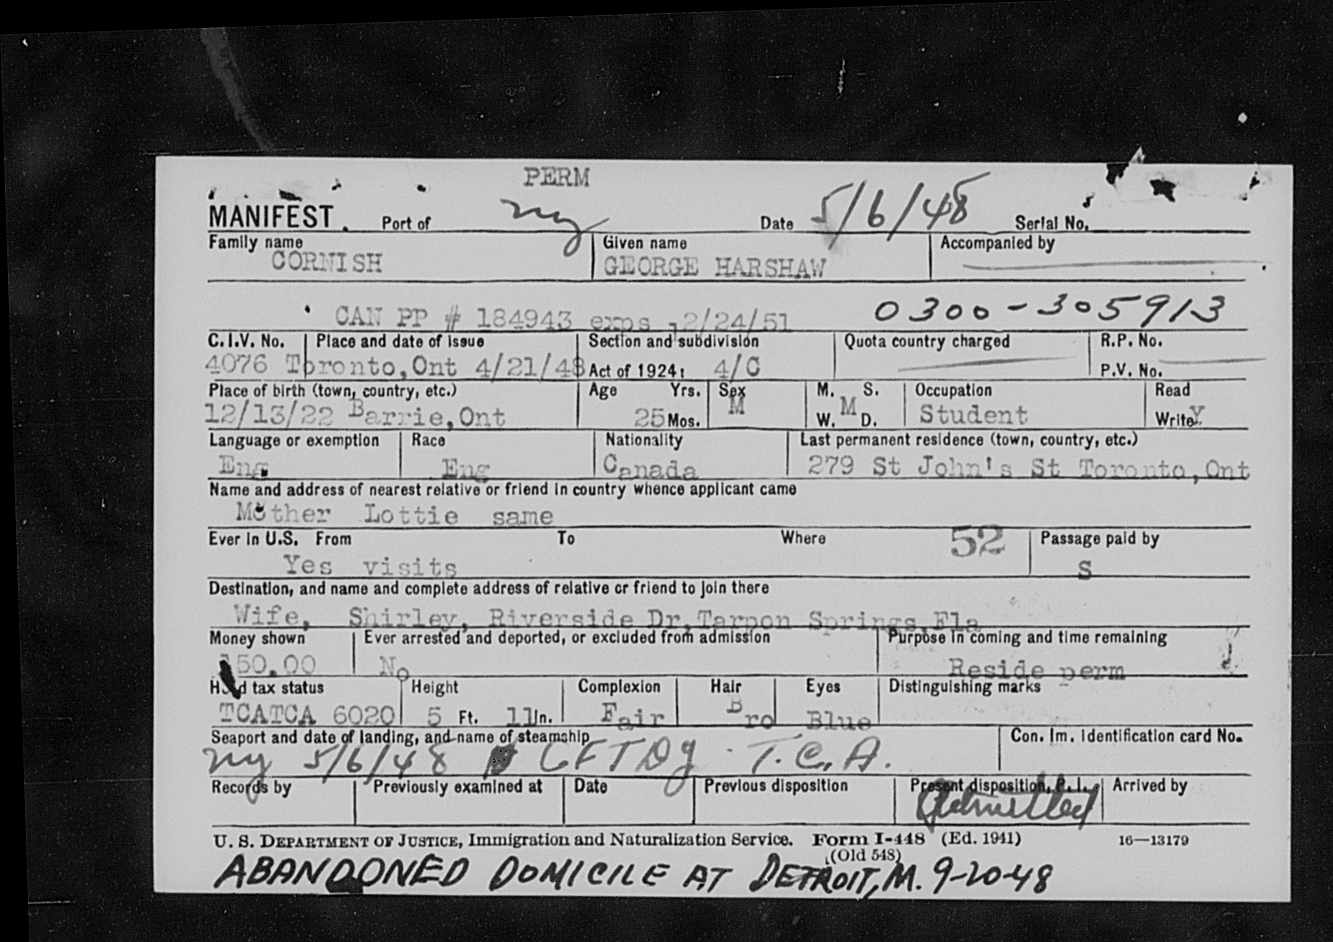 PERM
MANIFEST Port of ny Date 5/6/48 Serial No.
Family name Given name Accompanied by
CORNISH GEORGE HARSHAW
CAN PP # 184943 exps 2/24/51 0300-305913
C.I.V. No. Place and date of issue Section and subdivision Quota country charged R.P. No.
4076 Toronto,Ont 4/21/48 Act of 1924: 4/C P.V. No.
Place of birth (town, country, etc.) Age Yrs. Sex M. S. Occupation Read
12/13/22 Barrie,Ont 25 Mos. M W. M D. Student Write Y
Language or exemption Race Nationality Last permanent residence (town, country, etc.)
Eng Eng Canada 279 St John's St Toronto,Ont
Name and address of nearest relative or friend in country whence applicant came
Mother Lottie same
Ever in U.S. From To Where 52 Passage paid by
Yes visits S
Destination, and name and complete address of relative or friend to join there
Wife, Shirley, Riverside Dr,Tarpon Springs,Fla
Money shown Ever arrested and deported, or excluded from admission Purpose in coming and time remaining
50.00 No Reside perm
Head tax status Height Complexion Hair Eyes Distinguishing marks
TCATCA 6020 5 Ft. 11 In. Fair Bro Blue
Seaport and date of landing, and name of steamship Con. Im. Identification card No.
ny 5/6/48 CFTDJ T.C.A.
Records by Previously examined at Date Previous disposition Present disposition, P.I. Arrived by
Admitted
U. S. DEPARTMENT OF JUSTICE, Immigration and Naturalization Service. Form I-448 (Ed. 1941) 16—13179
(Old 548)
ABANDONED DOMICILE AT DETROIT, M. 9-20-48